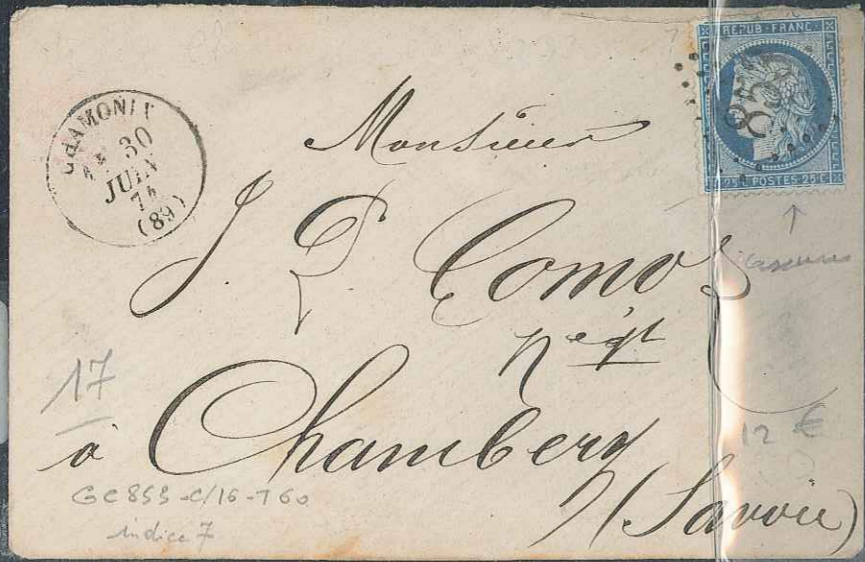 REPUB. FRANC.
853
25 C POSTES 25 C
CHAMONIX
30
JUIN
74
(89)
Monsieur
J. P. Comoz
négt
17
à Chambery
(Savoie)
12 €
GC 853 - C/16 - T60
indice 7